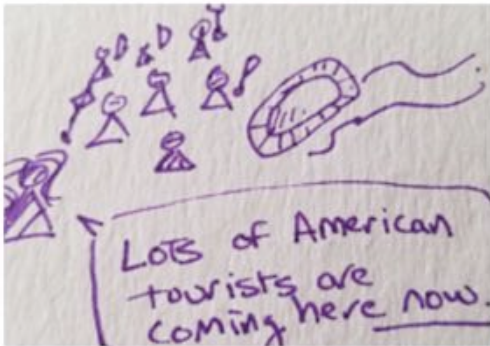 Lots of American
tourists are
coming here now.